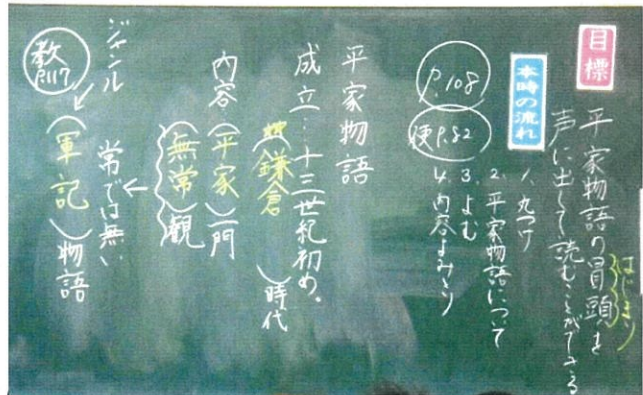 目標
平家物語の冒頭を
はじまり
声に出して読むことができる
本時の流れ
1. 丸つけ
2. 平家物語について
3. よむ
4. 内容よみとり
P.108
便P.82
平家物語
成立…十三世紀初め。
(鎌倉)時代
内容(平家)一門
(無常)観
常では無い
ジャンル
(軍記)物語
教P.117